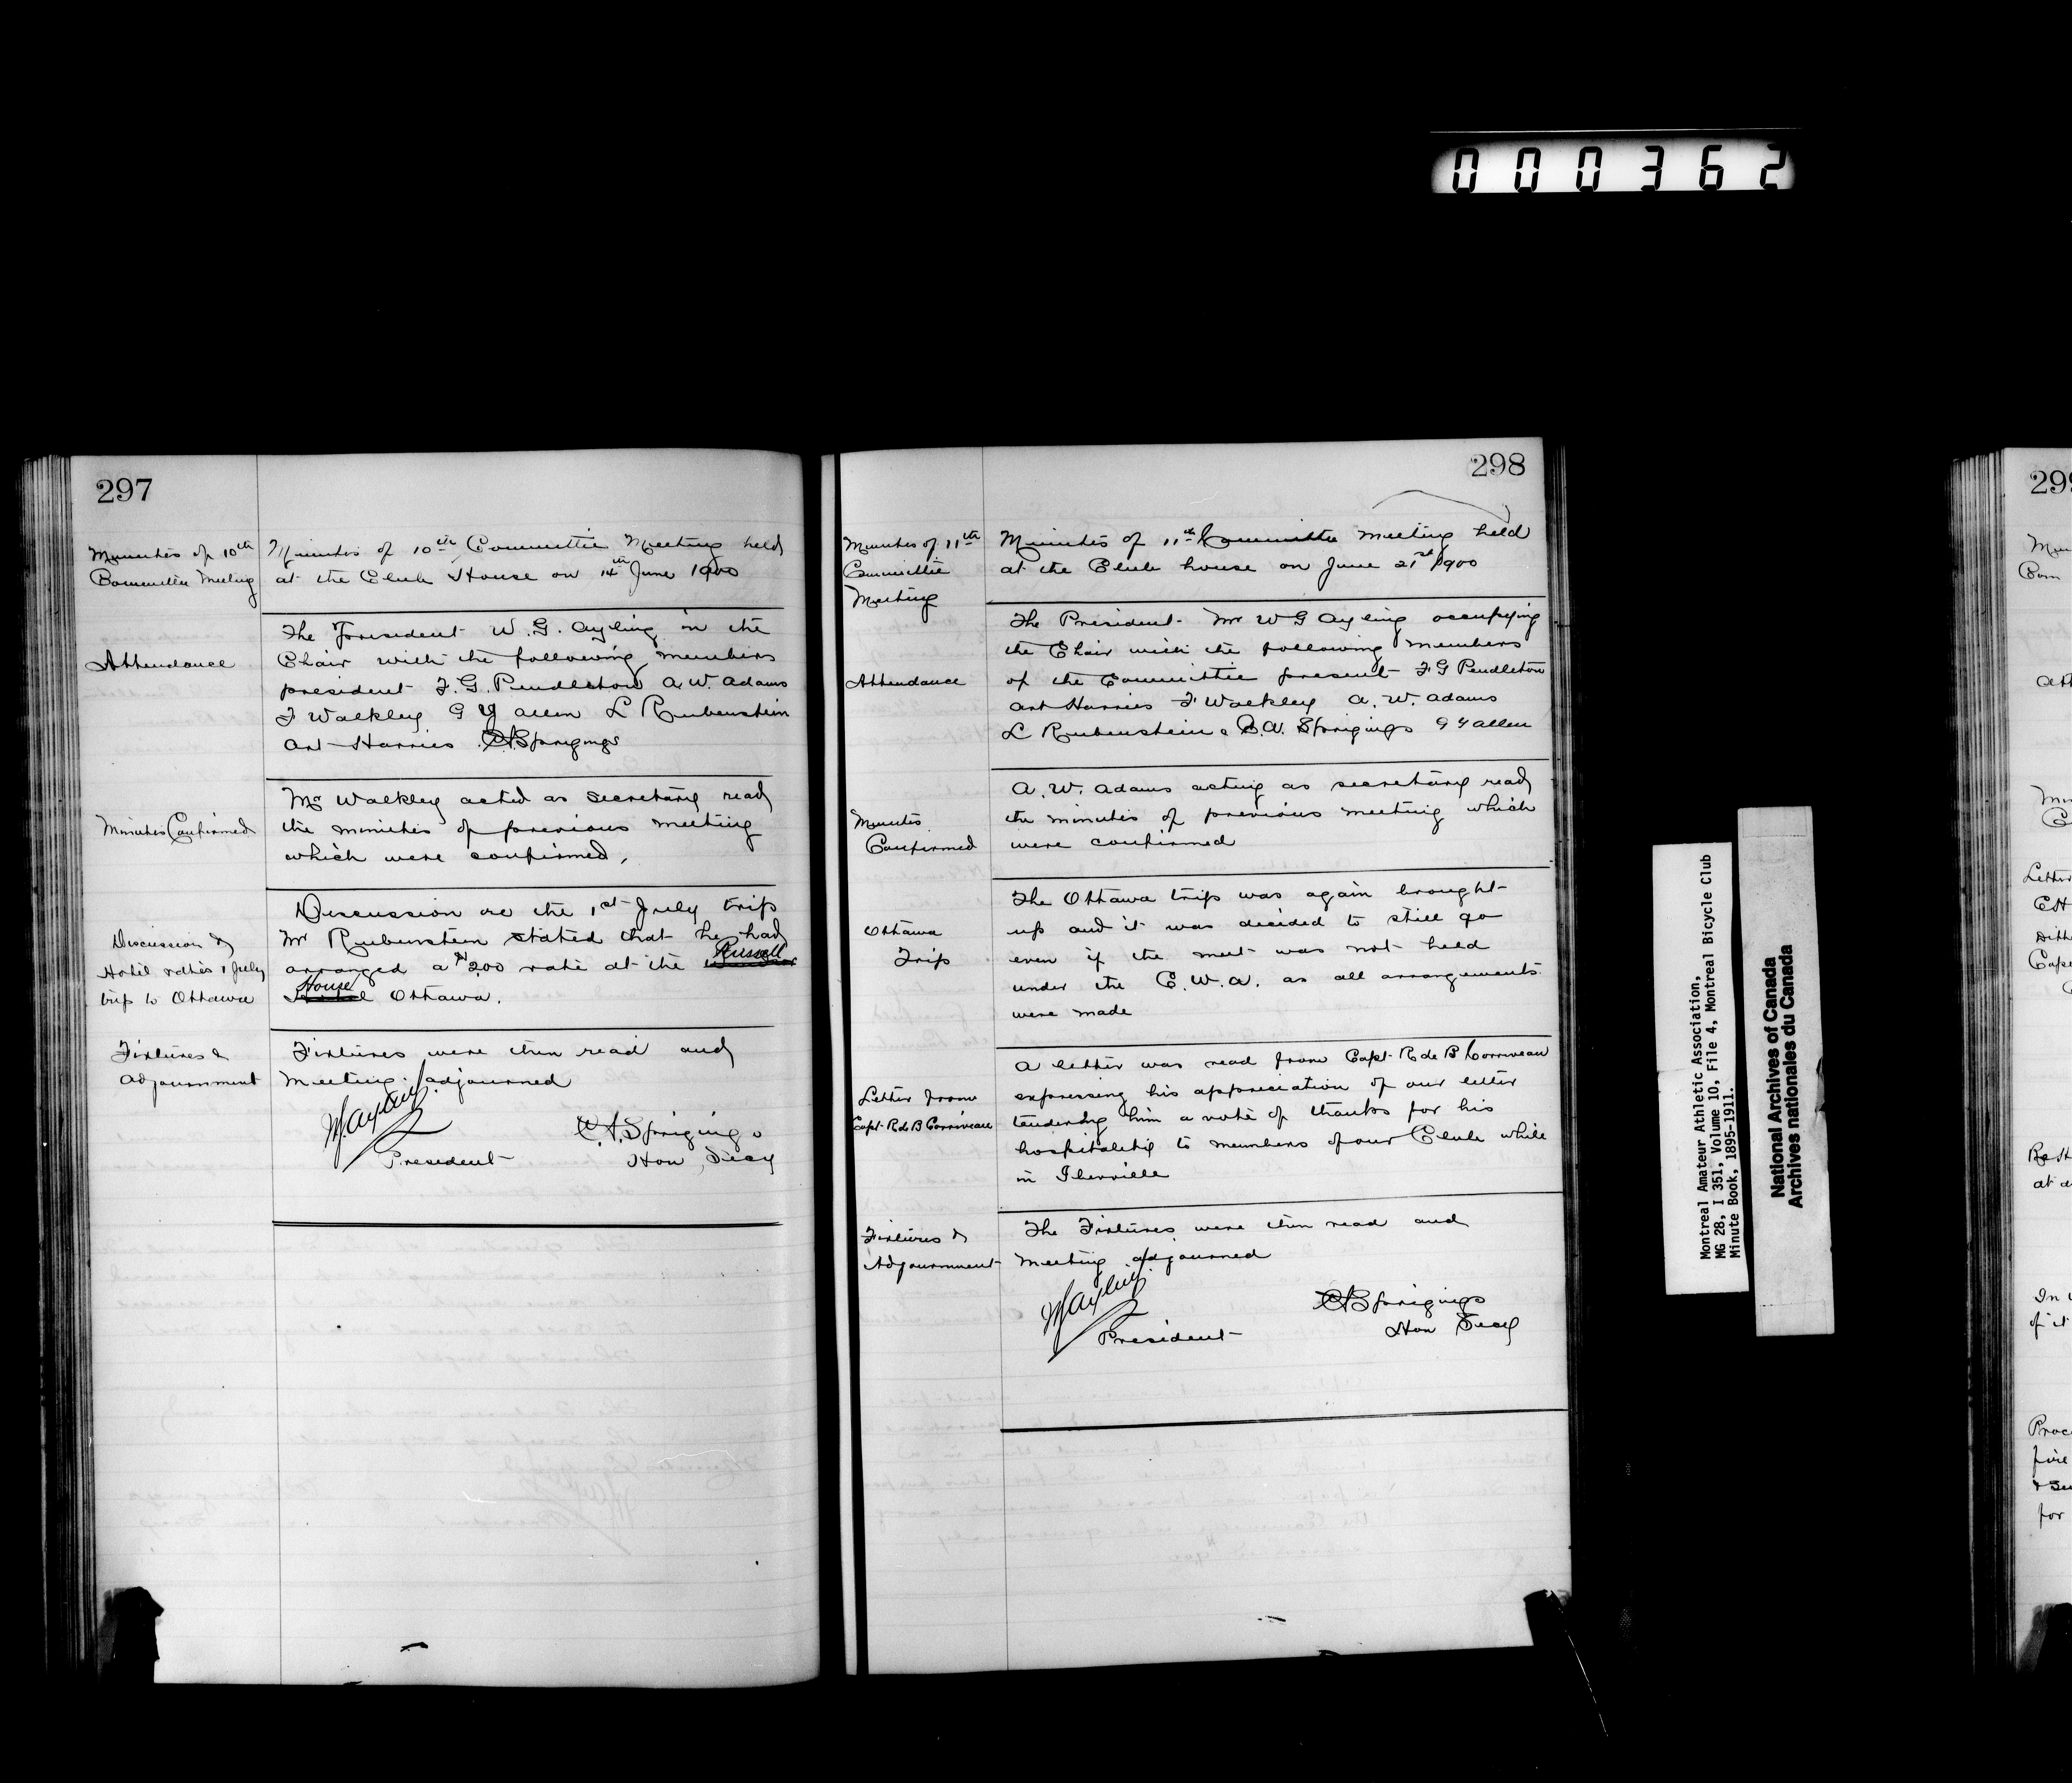 000362
297
Minutes of 10th
Committee Meeting
Minutes of 10th Committee Meeting held
at the Club House on 14th June 1900
Attendance
The President W. G. Ayling in the
Chair with the following members
president F. G. Pendleton A. W. Adams
F Walkley G Y Allen L Rubenstein
Art Harries Sprigings
Minutes Confirmed
Mr Walkley acted as secretary read
the minutes of previous meeting
which were confirmed.
Discussion &
Hotel rates 1 July
trip to Ottawa
Discussion re the 1st July trip
Mr Rubenstein stated that he had
arranged a $2.00 rate at the Russell
House Ottawa.
Fixtures &
Adjournment
Fixtures were then read and
Meeting adjourned
W. Ayling
President
Sprigings
Hon Secy
298
Minutes of 11th
Committee
Meeting
Minutes of 11th Committee Meeting held
at the Club house on June 21st 1900
Attendance
The President Mr W G Ayling occupying
the Chair with the following members
of the Committee present F G Pendleton
Art Harries F Walkley A. W. Adams
L Rubenstein & Sprigings G Y Allen
Minutes
Confirmed
A. W. Adams acting as secretary read
the minutes of previous meeting which
were confirmed
Ottawa
Trip
The Ottawa trip was again brought
up and it was decided to still go
even if the meet was not held
under the C. W. A. as all arrangements
were made
Letter from
Capt R de B Corriveau
A letter was read from Capt R de B Corriveau
expressing his appreciation of our letter
tenderdg him a vote of thanks for his
hospitality to members of our Club while
in Iberville
Fixtures &
Adjournment
The Fixtures were then read and
Meeting adjourned
W Ayling
President
Sprigings
Hon Secy
Montreal Amateur Athletic Association,
MG 28, I 351, Volume 10, File 4, Montreal Bicycle Club
Minute Book, 1895-1911.
National Archives of Canada
Archives nationales du Canada
299
Com
Letter
Capt
at a
of it
for